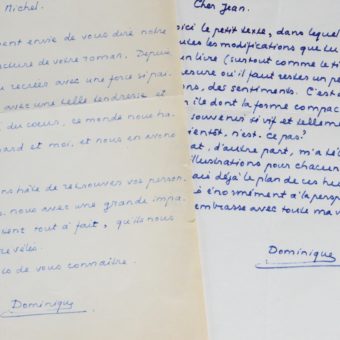 Michel.
ent envie de vous dire notre
ecture de votre roman. Depuis
u recrées avec une force si pai-
avec une telle tendresse et
du cœur, ce monde nous ha-
hard et moi, et nous en avons
hâte de retrouver vos person-
nous avec une grande impa-
tout à fait, qu'ils nous
révélés.
de vous connaître.
Dominique
Cher Jean.
ici le petit texte, dans lequel
les modifications que tu
en livre (surtout comme le ti
esure où il faut rester un pe
ons, des sentiments. C'est
île dont la forme compac
souvenir si vif et tellem
ientôt, n'est-ce pas?
at, d'autre part, m'a té
illustrations pour chacun
ai déjà le plan de ces hu
énormément à la persp
embrasse avec toute ma
Dominique